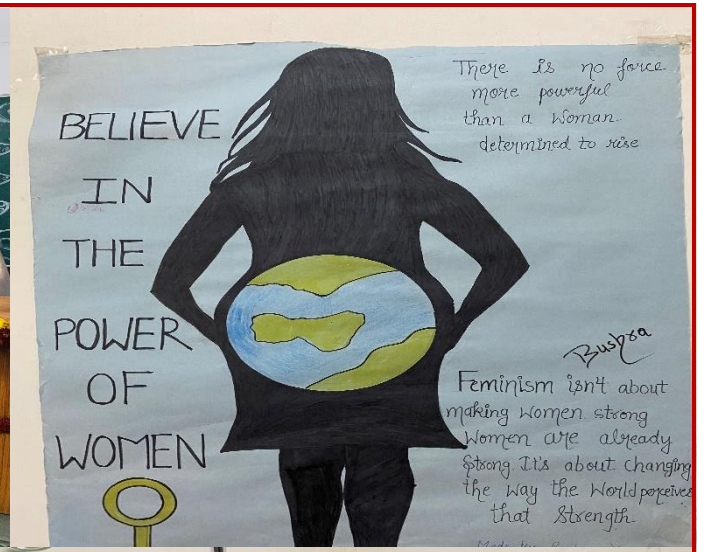 BELIEVE
IN
THE
POWER
OF
WOMEN
There is no force
more powerful
than a Woman
determined to rise
Bushra
Feminism isn't about
making women strong
Women are already
strong. It's about changing
the way the World perceives
that Strength
Made by